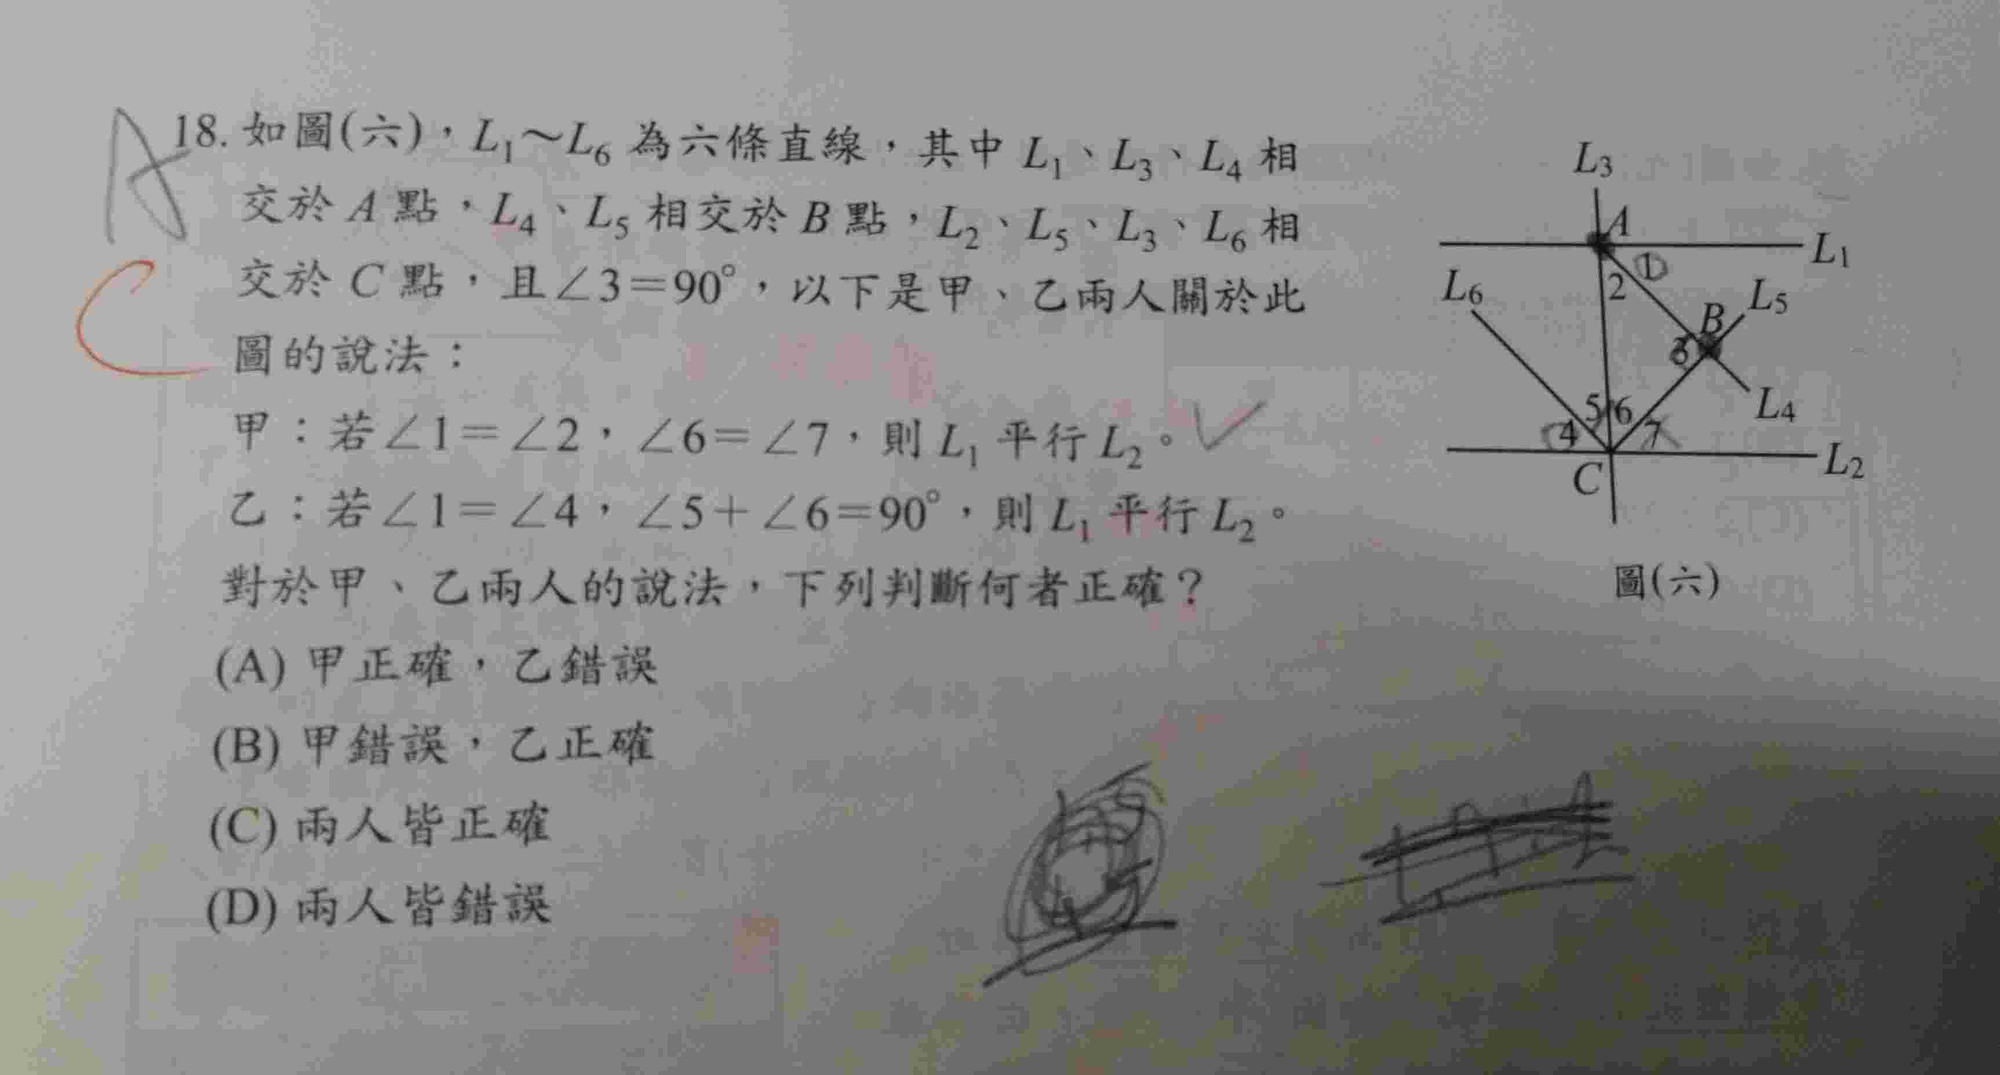 A
C
18. 如圖(六)，L₁～L₆ 為六條直線，其中 L₁、L₃、L₄ 相
交於 A 點，L₄、L₅ 相交於 B 點，L₂、L₅、L₃、L₆ 相
交於 C 點，且∠3＝90°，以下是甲、乙兩人關於此
圖的說法：
甲：若∠1＝∠2，∠6＝∠7，則 L₁ 平行 L₂。
乙：若∠1＝∠4，∠5＋∠6＝90°，則 L₁ 平行 L₂。
對於甲、乙兩人的說法，下列判斷何者正確？
(A) 甲正確，乙錯誤
(B) 甲錯誤，乙正確
(C) 兩人皆正確
(D) 兩人皆錯誤
L₃
A
L₁
1
2
L₆
L₅
B
3
L₄
5 6
4 7
L₂
C
圖(六)